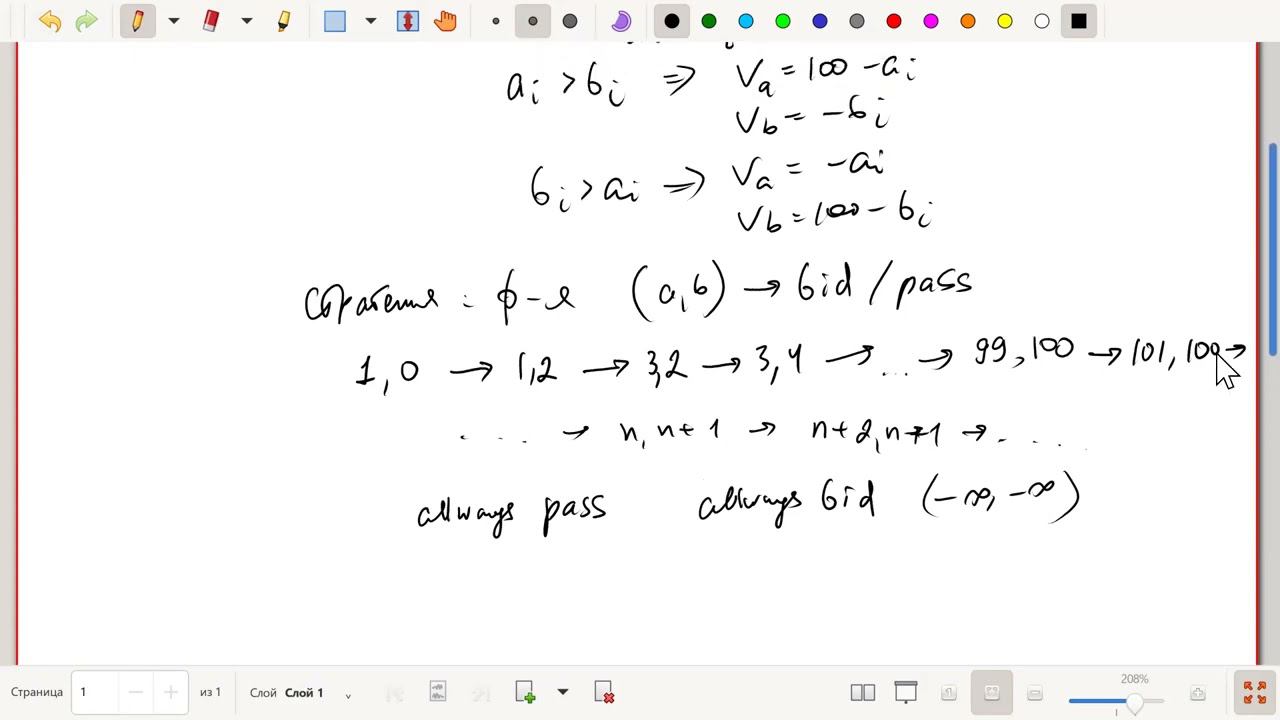 aᵢ > bᵢ ⇒ Vₐ = 100 - aᵢ
V_b = -bᵢ
bᵢ > aᵢ ⇒ Vₐ = -aᵢ
V_b = 100 - bᵢ
Стратегия : ф-я (a, b) → bid / pass
1, 0 → 1, 2 → 3, 2 → 3, 4 → ... → 99, 100 → 101, 100 →
.... → n, n+1 → n+2, n+1 → ....
always pass always bid (-∞, -∞)
Страница 1 из 1 Слой Слой 1 208%